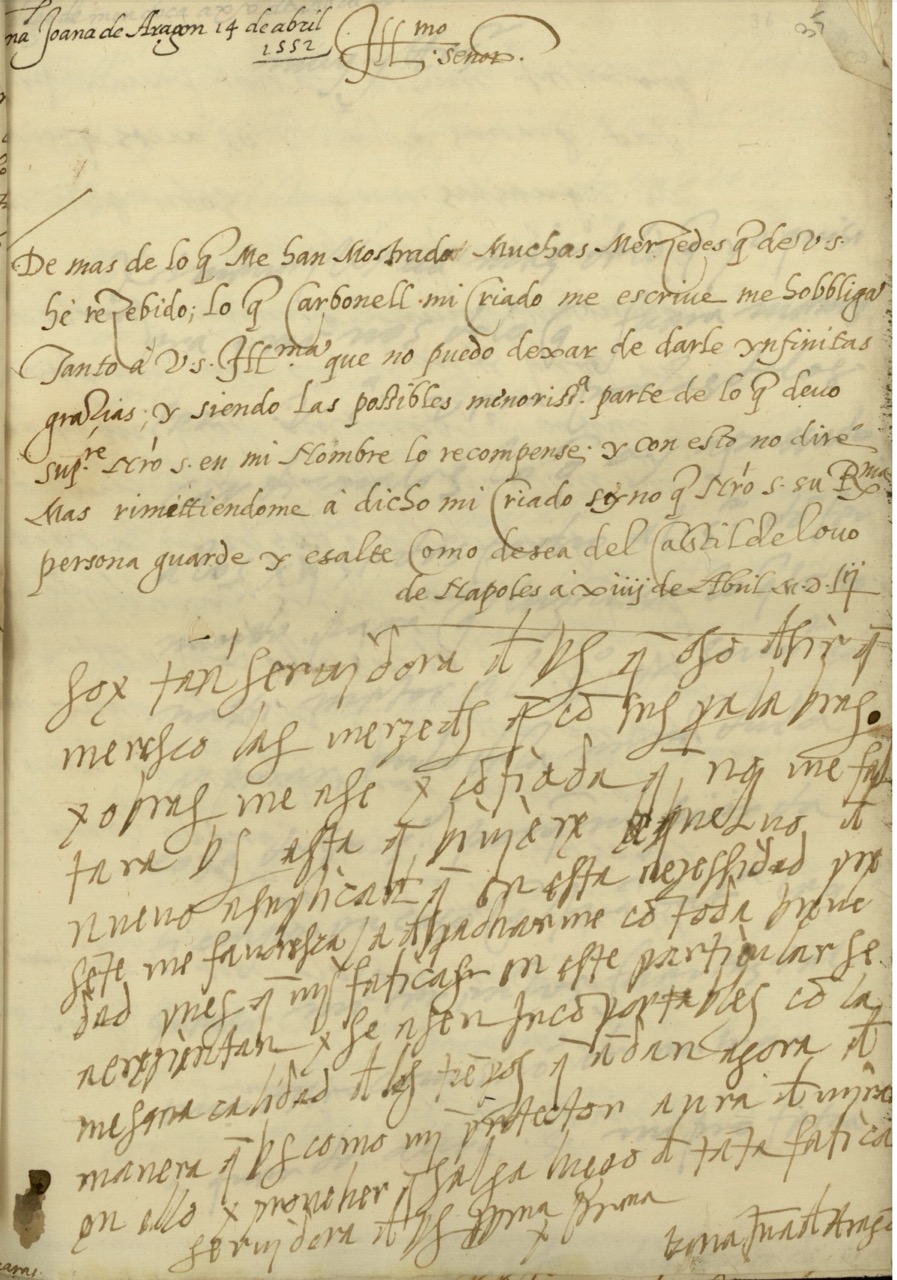 na Joana de Aragon 14 de abril
1552
Ill mo
Señor.
35
De mas de lo q̃ Me han Mostrado Muchas Merzedes q̃ de V. s.
hè rezebido; lo q̃ Carbonell mi Criado me escriue me hobbliga
Tanto à V. s. Ill.ma que no puedo dexar de darle ynfinitas
grazias; y siendo las possibles menoriss.a parte de lo q̃ deuo
sup.re Nr̃o s. en mi Nombre lo recompense; y con esto no dirè
Mas rimettiendome à dicho mi Criado syno q̃ Nr̃o s. su R.ma
persona guarde y esalte Como desea del Castil de louo
de Napoles à xiiij de Abril M.D.lij
soy tan seruidora d VS q̃ oso dezir q̃
meresco las merzedes q̃ cō sus palabras
y obras me ase y cōfiada q̃ nū me fal
tara VS asta q̃ biuiere bueluo d
nueuo a suplicarle q̃ en esta nezessidad pre
sēte me fauoresca a despacharme cō toda breue
dad pues q̃ mis faticas en este particular se
acresientan y se asen Incōportables cō la
mesqina calidad d los tiēpos q̃ ādan agora d
manera q̃ VS como mi protetor aura d mirar
en ello y proueher q̃ salga luego d tāta fatica
seruidora d VS Illma y Rma
Dona Juā d Aragō